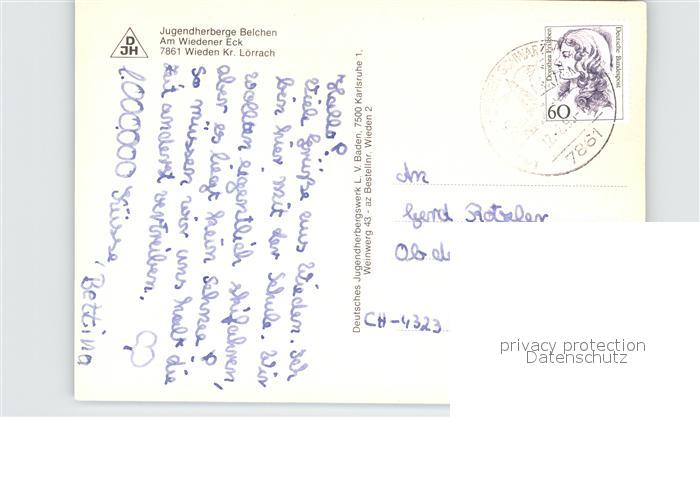 DJH
Jugendherberge Belchen
Am Wiedener Eck
7861 Wieden Kr. Lörrach
Hallo!
Viele Grüße aus Wieden. Ich
bin hier mit der Schule. Wir
wollten eigentlich skifahren,
aber es liegt kein Schnee!
So müssen wir uns halt die
Zeit anderst vertreiben.
1.000.000 Küsse,
Bettina
Deutsches Jugendherbergswerk L. V. Baden, 7500 Karlsruhe 1,
Weinweg 43 - az Bestellnr. Wieden 2
Deutsche Bundespost
Dorothea Erxleben
60
7861
An
Gerd
Ob d
CH-4323
privacy protection
Datenschutz